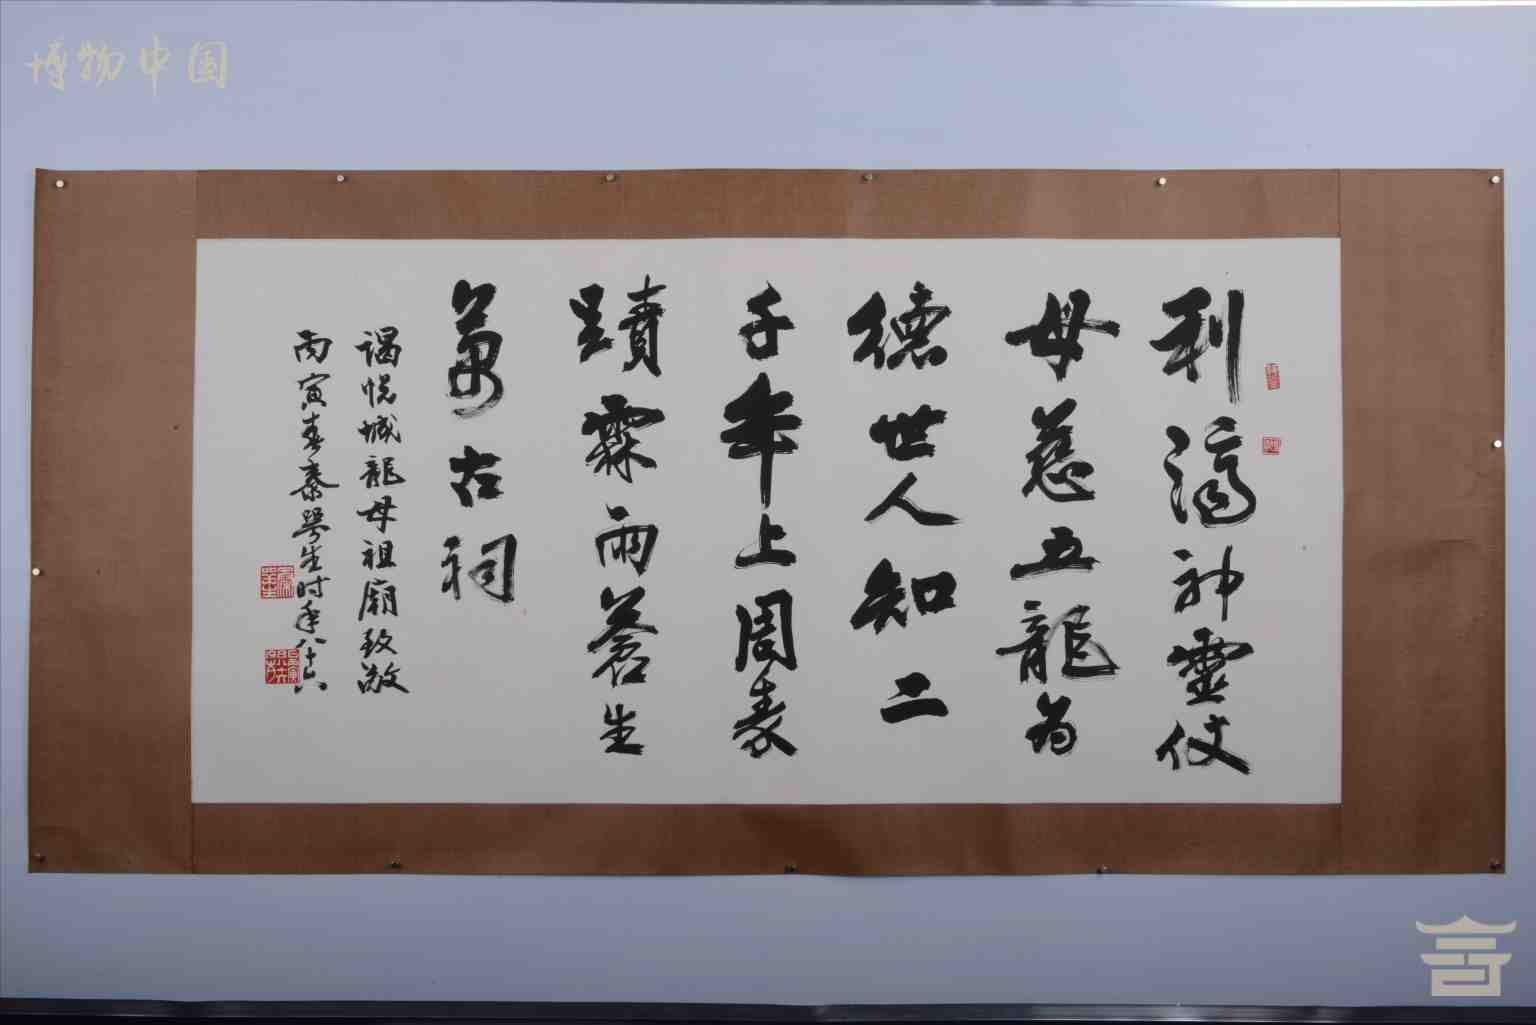 博物中国
利濟神靈仗
母慈五龍為
德世人知二
千年上周秦
蹟霖雨蒼生
萬古祠
謁悦城龍母祖廟致敬
丙寅春秦咢生时年八十六